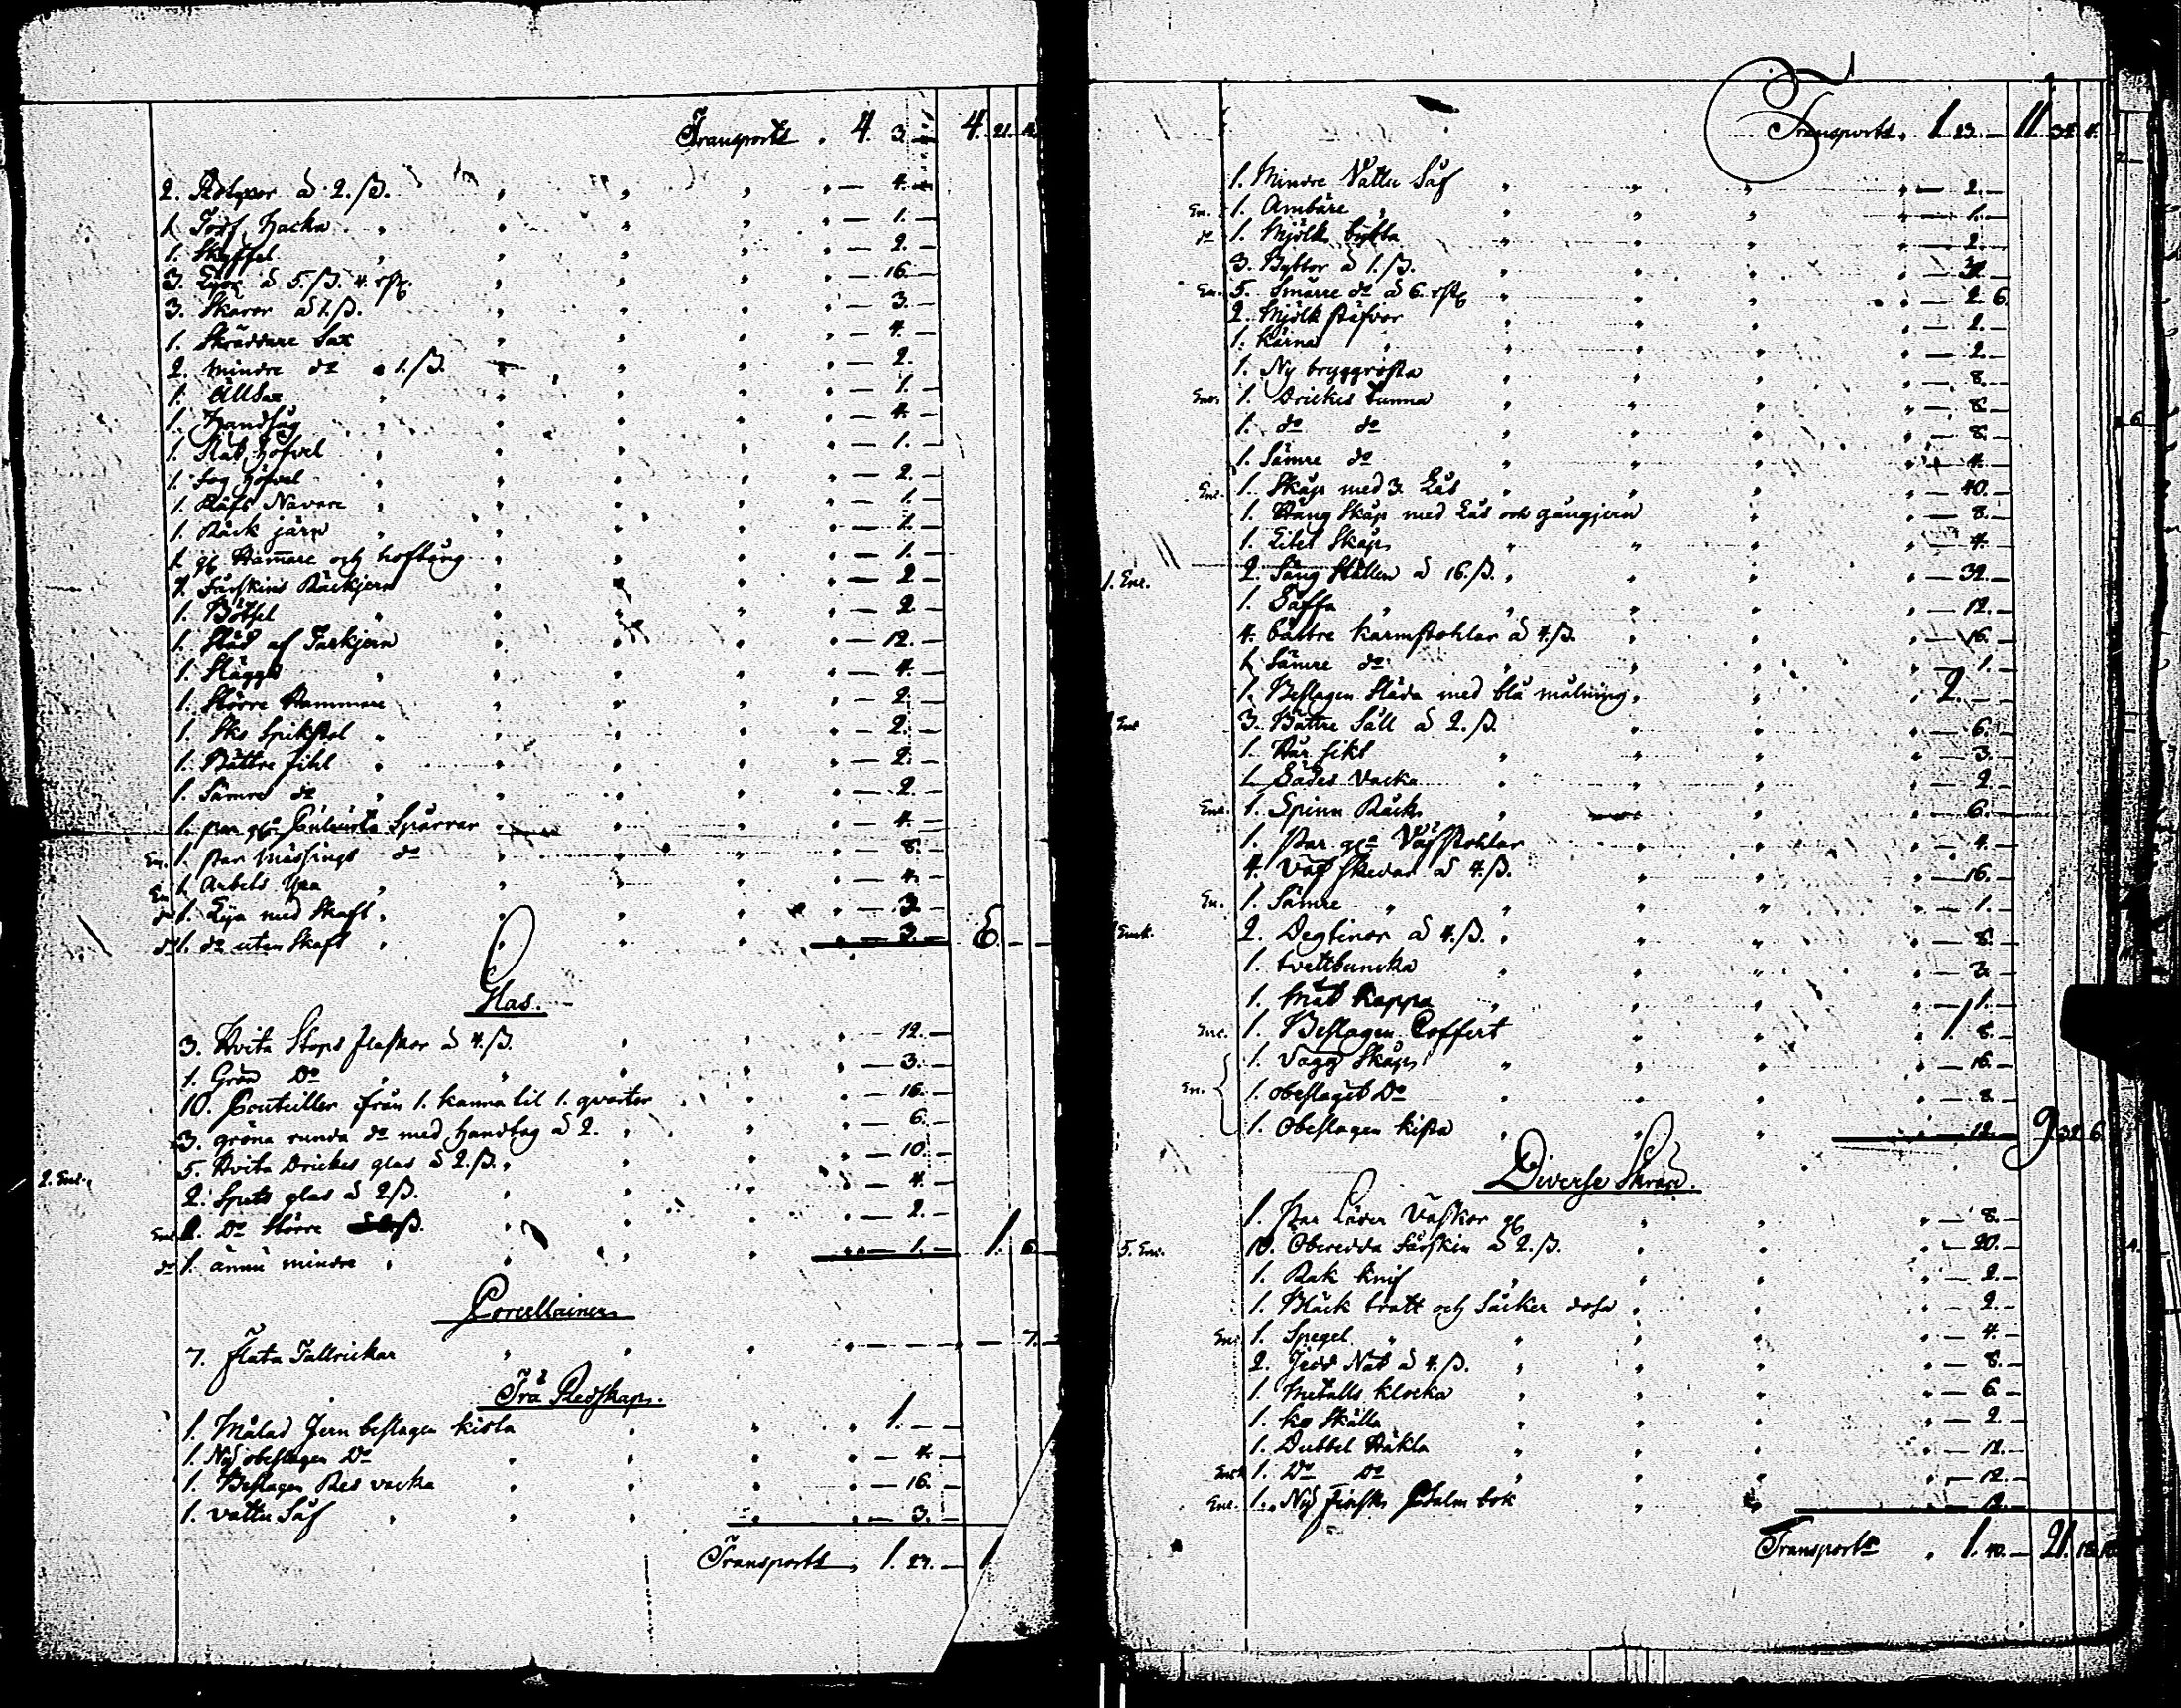 Transport . 4. 3. — 4. 21.
2. Rotyxor à 2. ß. — 4. —
1. Torf Hacka — 1. —
1. Skyffel — 2. —
3. Lyor à 5. ß. 4. rst. — 16. —
3. Skäror à 1. ß. — 3. —
1. Skräddare Sax — 4. —
2. mindre do à 1. ß. — 2. —
1. Ullsax — 1. —
1. Handsåg — 4. —
1. Slät Höfvel — 1. —
1. Fog höfvel — 2. —
1. Räfs Navare — 1. —
1. Räck järn — 1. —
1. gl Hammare och hoftång — 1. —
1. Fårskins Räckjern — 2 —
1. Bötsel — 2 —
1. Städ af Tackjern — 12. —
1. Slägga — 4. —
1. Större Hammare — 2. —
1. Sko Spikstol — 2. —
1. Bättre fihl — 2. —
1. Sämre do — 2. —
1. par gl. Spärrar — 4. —
En. 1. par Mässings do — 8. —
En 1. Arbets Yxa — 4. —
do 1. Lya med Skaft — 3. —
do 1. do utan Skaft — 3. — 6. — —
Glas.
3. Hvita Stops flaskor à 4. ß. — 12. —
1. Grön Do — 3. —
10. Bouteiller ifrån 1. kanna til 1. qvarter — 16. —
3. gröna runda do med Handtag à 2. — 6. —
5. Hvita Drickes glas à 2. ß. — 10. —
2. Enl. 2. Spets glas à 2 ß. — 4. —
Enl. 1. Do större — 2. —
do 1. ännu mindre — 1. — 1. 6. —
Porcellainer
7. flata Tallrickar — — — 7. —
Trä Redskap.
1. Målad Jern beslagen kista 1. — —
1. Ny obeslagen Do — 4. —
1. Beslagen Res vacka — 16. —
1. vattu Så — 3. —
Transport . 1. 23. — 1
Transport . 1. 23. — 11. 32. 4.
1. Mindre Vattu Så — 2. —
En. 1. Ämbare — 1. —
do 1. Mjölk bytta — 2. —
3. Byttor à 1. ß. — 3. —
En. 5. Smärre do à 6. rst — 2. 6.
2. Mjölk stäfvor — 2. —
1. Kärna — 2. —
1. Ny bryggrosta — 8. —
Enr. 1. Drickes tunna — 8. —
1. do do — 8. —
1. Sämre do — 4. —
Enr. 1. Skåp med 3. Lås — 40. —
1. Häng Skåp med Lås och gångjern — 8. —
1. Litet Skåp — 4. —
1. Enr. 2. Säng Ställen à 16. ß. — 32. —
1. Säffa — 12. —
4. bättre karmstohlar à 4. ß. — 16. —
1. Sämre do — 1. —
1. Beslagen Släda med blå målning. 2. — —
Enl 3. Bättre Såll à 2. ß. — 6. —
1. Hår sikt — 3. —
1. Sädes Vacka — 2 —
Enr. 1. Spinn Råck — 6. —
1. par gl. Väfstohlar — 4. —
4. Väf Skedar à 4. ß. — 16. —
En. 1. Sämre — 1. —
Enk. 2. Degtinor à 4. ß. — 8. —
1. tvettbuncka — 3. —
1. Mät Kappa — 1. —
Enr. 1. Beslagen Coffert 1. 8. —
1. Vägg Skåp — 16. —
En. 1. obeslaget Do — 8. —
1. Obeslagen kista — 12. — 9. 32. 6.
Diverse Skrap.
1. Par Läder Väskor gl — 8. —
5. Enr. 10. Oberedda Fårskin à 2. ß. — 20. —
1. Rak knif — 2. —
1. Bläck tratt och Såcker dosa — 2. —
Enr 1. Spegel — 4. —
2. Jedd Nät à 4. ß. — 8. —
1. Metalls klocka — 6 —
1. ko Skälla — 2. —
1. Dubbel Häkla — 12. —
Enk 1. Do do — 12. —
Enr. 1. Ny Finsk Psalm bok — 12. —
Transport . 1. 10. — 21. 18. 10